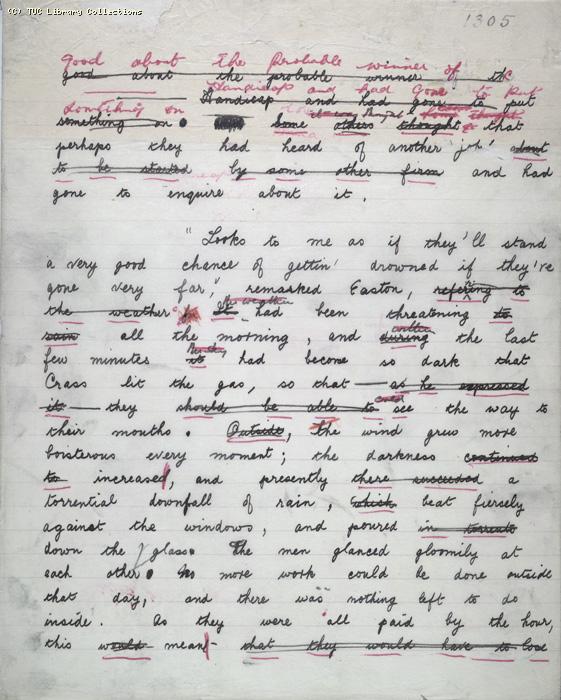 (C) TUC Library Collections
1305
good about the probable winner of
good about the probable winner of the
Handicap and had gone to put
Handicap and had gone to put
something on
something on. Some others thought that
perhaps they had heard of another 'job' about
to be started by some other firm and had
gone to enquire about it.
"Looks to me as if they'll stand
a very good chance of gettin' drowned if they've
gone very far," remarked Easton, refering to
the weather. It had been threatening to
The weather
rain all the morning, and during the last
few minutes it had become so dark that
Crass lit the gas, so that — as he expressed
it — they should be able to see the way to
their mouths. Outside, the wind grew more
boisterous every moment; the darkness continued
to increased, and presently there succeeded a
torrential downfall of rain, which beat fiersely
against the windows, and poured in torrents
down the glass. The men glanced gloomily at
each other. No more work could be done outside
that day, and there was nothing left to do
inside. As they were all paid by the hour,
this would mean that they would have to lose